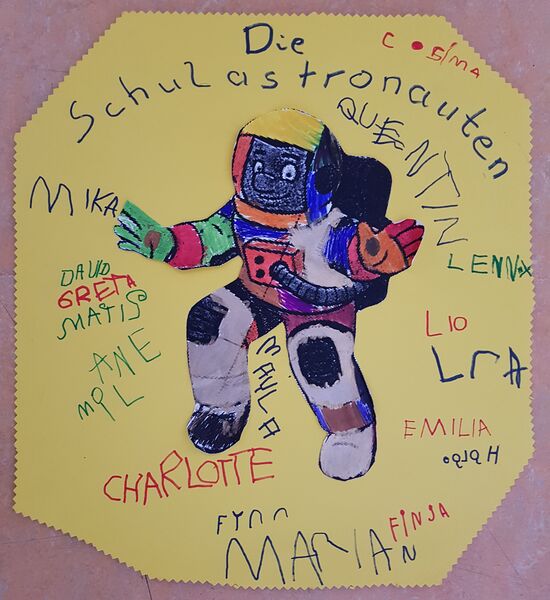 Die
Schulastronauten
COSIMA
QUENTIN
MIKA
LENNOX
DAVID
GRETA
MATIS
LIO
ANE
MAYLA
EMILIA
CHARLOTTE
FYNN
FINJA
MARIAN